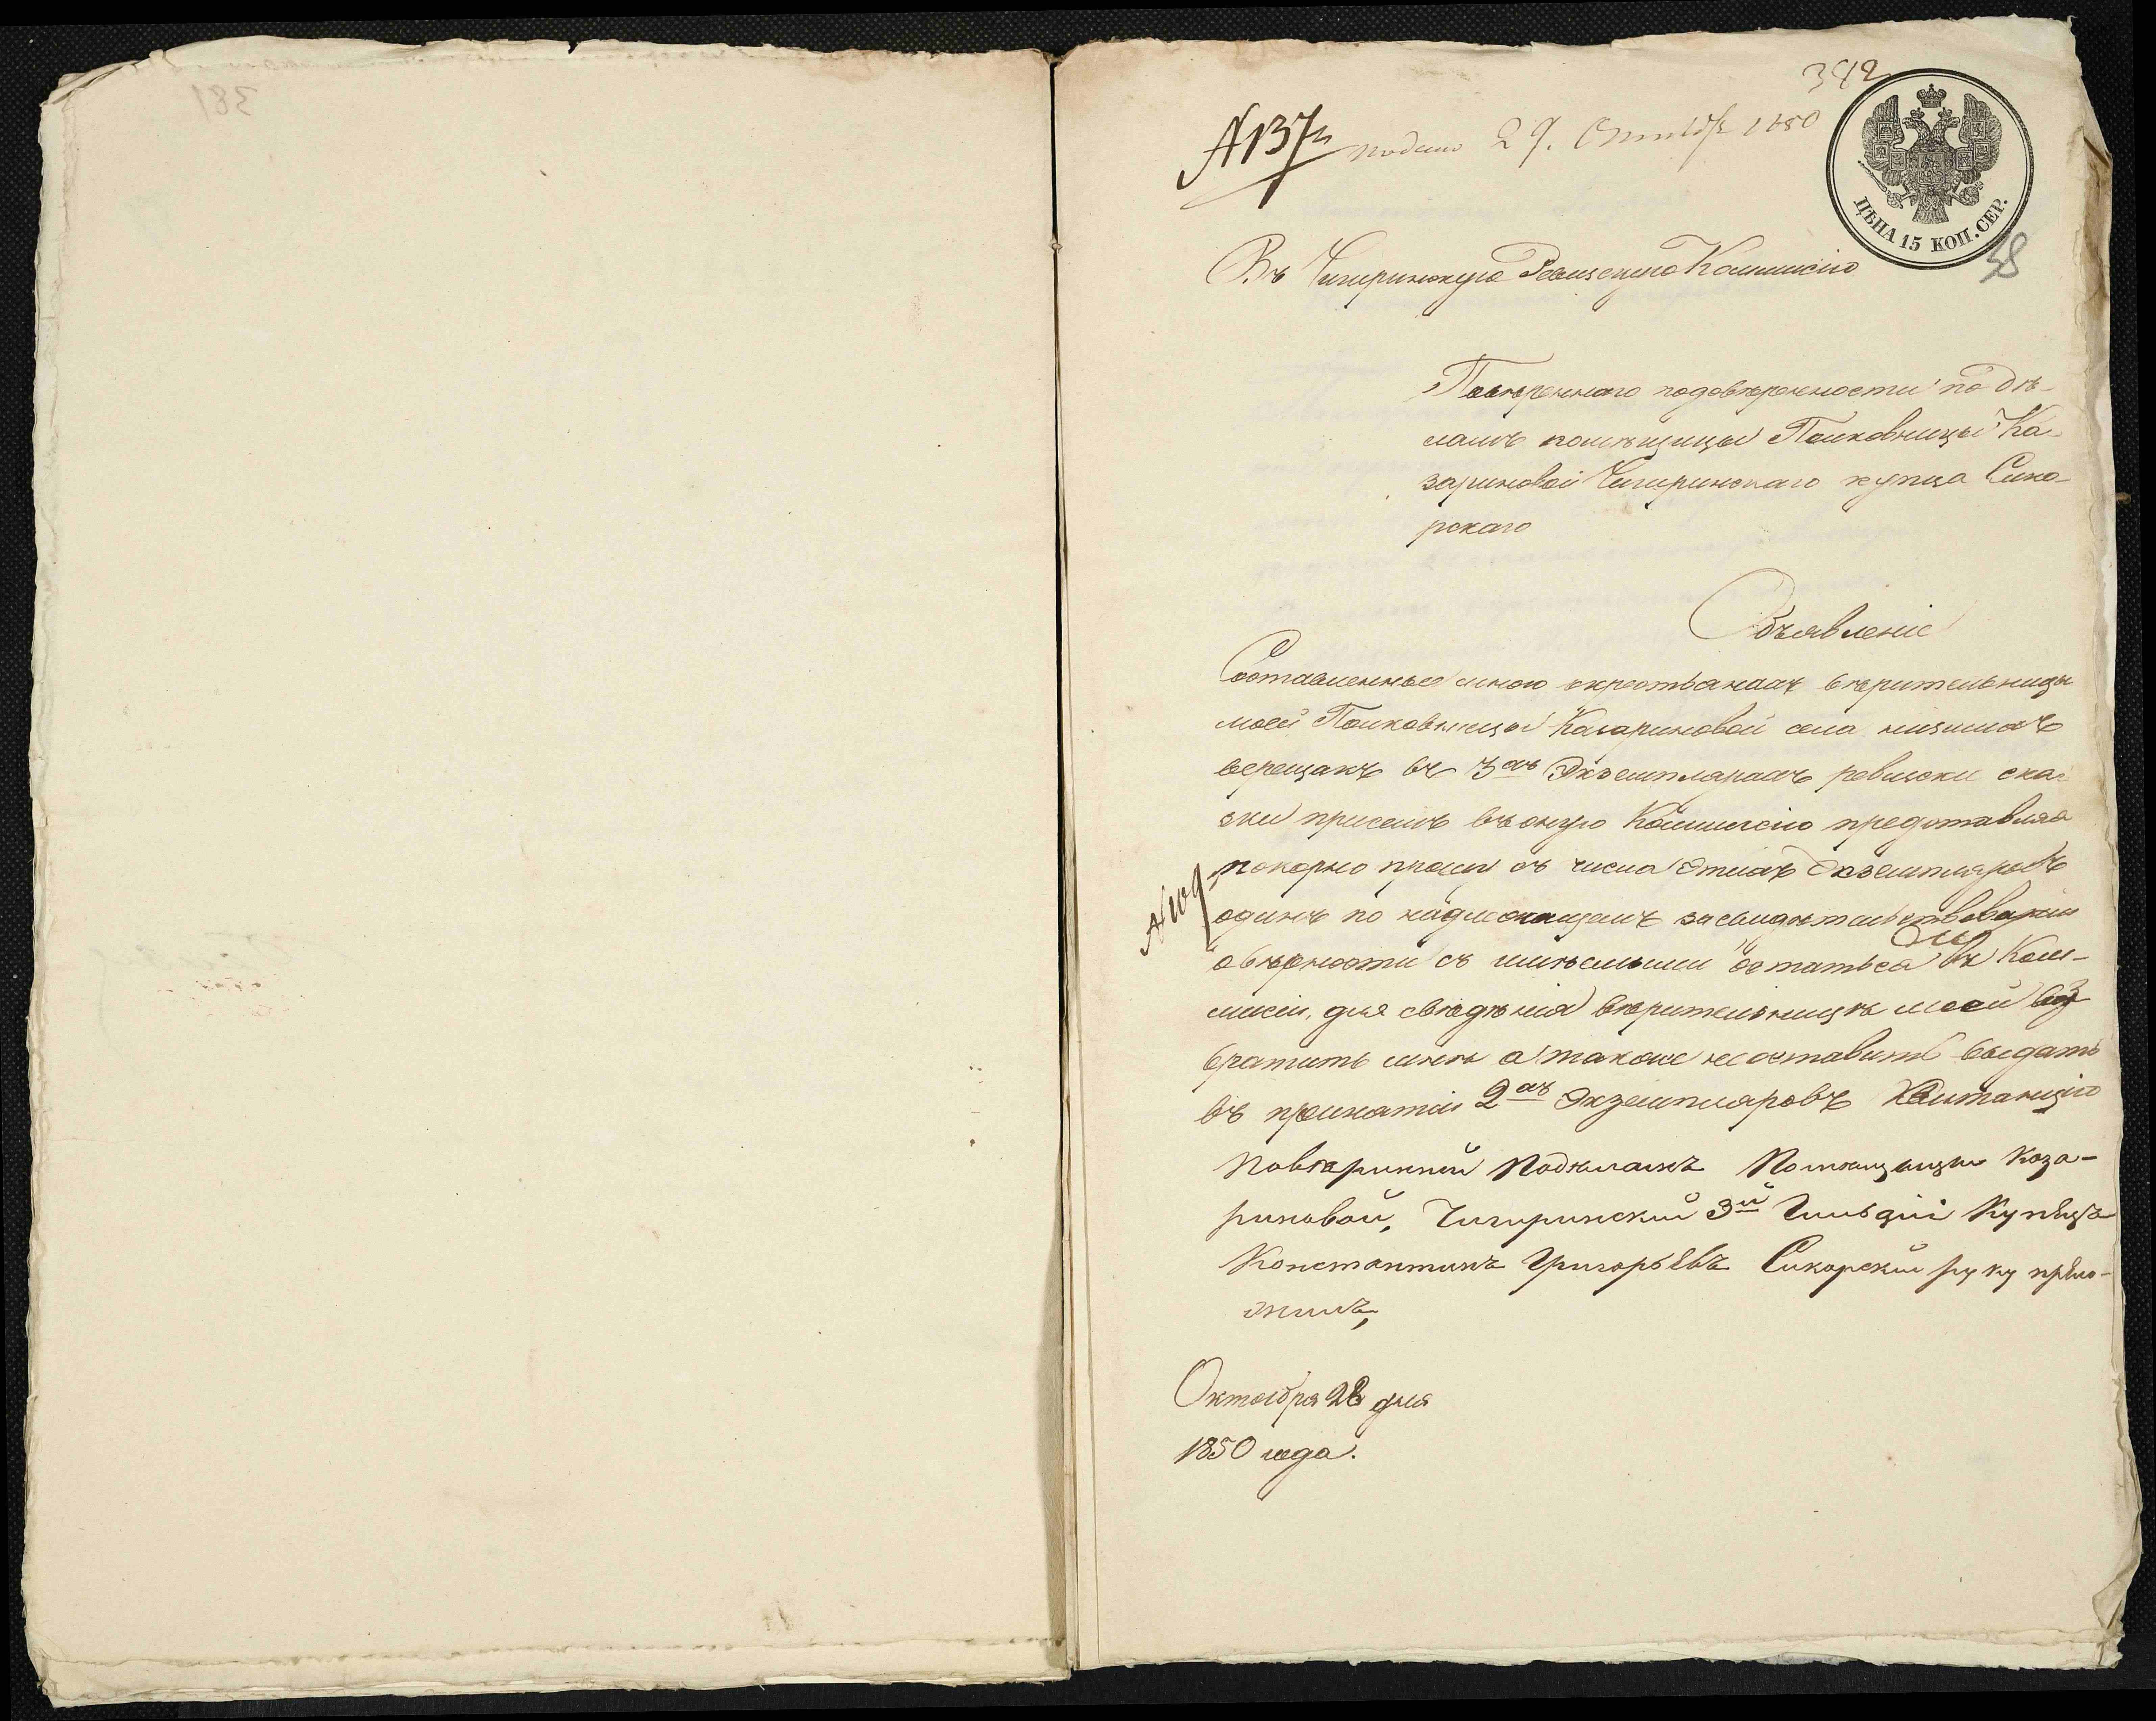 382
№ 137й подано 29. Октября 1850
ЦѢНА 15 КОП. СЕР.
38
Въ Чигиринскую Ревизскую Коммисію
Повѣреннаго подовѣренности по дѣ-
ламъ помѣщицы Полковницы Ка-
зариновой Чигиринскаго купца Сико-
рскаго
Объявленіе
Составленные мною окрестьянахъ вѣрительницы
моей Полковницы Казариновой села
верещакъ въ 3хъ Экземплярахъ ревизски ска-
зки присемъ въоную Коммисію представляя
покорно прошу съ числа этихъ Экземпляровъ
№ 109
одинъ по надлежащемъ засвидѣтельствованіи
овѣрности съ остаться въ Ком-
мисіи, для свѣденія вѣрительницѣ моей воз
вратить мнѣ а также неоставить выдать
въ принятіи 2хъ Экземпляровъ Квитанцію
Повѣринный Подѣламъ Помѣщицы Коза-
риновой, Чигиринский 3й Гильдіи Купѣцъ
Константинъ Григорьевъ Сикорский руку прило-
жилъ,
Октября 28 дня
1850 года.